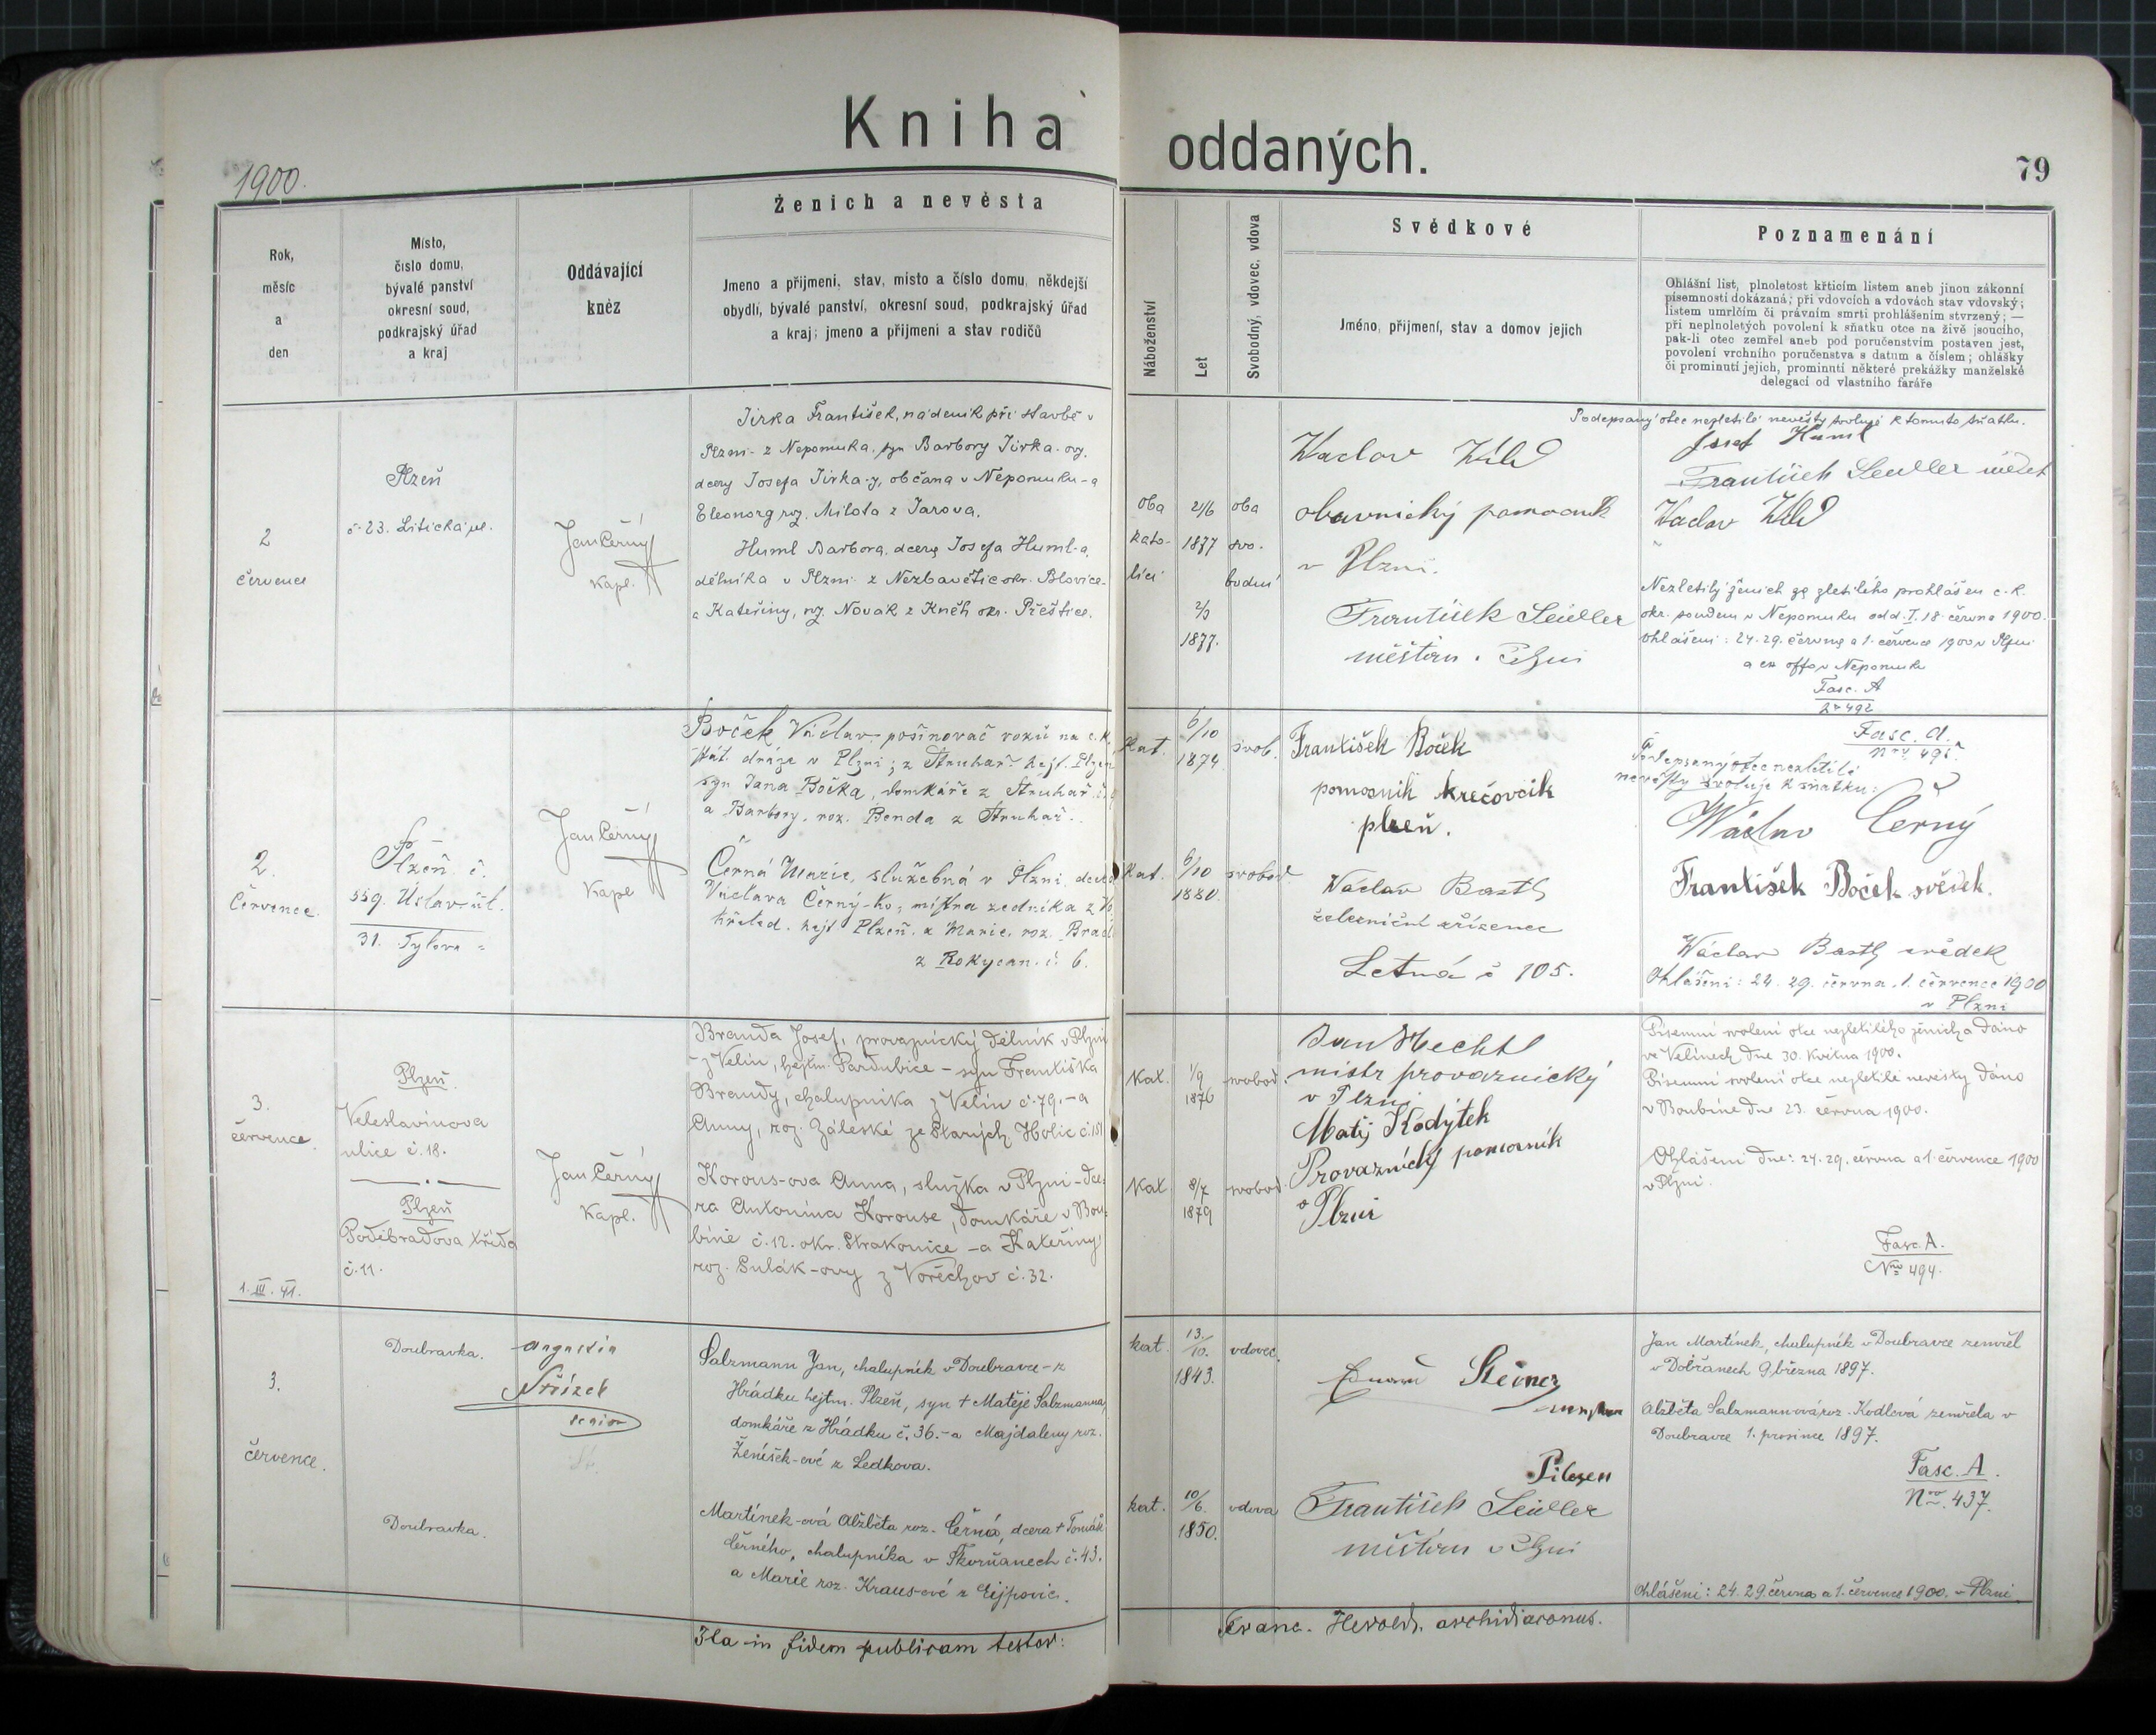 Kniha oddaných.
1900.
79
Ženich a nevěsta
Svědkové
Poznamenání
Rok,
měsíc
a
den
Místo,
číslo domu,
bývalé panství
okresní soud,
podkrajský úřad
a kraj
Oddávající
kněz
Jmeno a přijmeni, stav, místo a číslo domu, někdejší
obydlí, bývalé panství, okresní soud, podkrajský úřad
a kraj; jmeno a přijmení a stav rodičů
Náboženství
Let
Svobodný, vdovec, vdova
Jméno, přijmení, stav a domov jejich
Ohlášní list, plnoletost křticím listem aneb jinou zákonní
písemností dokázaná; při vdovcích a vdovách stav vdovský;
listem umrlčím či právním smrti prohlášením stvrzený; —
při neplnoletých povolení k sňatku otce na živě jsoucího,
pak-li otec zemřel aneb pod poručenstvím postaven jest,
povolení vrchního poručenstva s datum a číslem; ohlášky
či prominutí jejich, prominutí některé prekážky manželské
delegací od vlastního faráře
2
července
Plzeň
č. 23. Litická ul.
Jan Černý
kapl.
Jirka František, nádeník při stavbě v
Plzni - z Nepomuka, syn Barbory Jirka-ovy,
dcery Josefa Jirka-y, občana v Nepomuku - a
Eleonory roz. Milota z Jarova.
Huml Barbora, dcera Josefa Huml-a,
dělníka v Plzni z Nezbavětic okr. Blovice -
a Kateřiny, roz. Novák z Kněh okr. Přeštice.
oba
kato-
líci
21/6
1877
2/3
1877.
oba
svo-
bodní
Waclav
obuvnický pomocník
v Plzni.
František Seidler
měšťan v Plzni
Podepsaný otec nezletilé nevěsty svoluje k tomuto sňatku.
Josef Huml
František Seidler svědek
Waclav
Nezletilý ženich za zletilého prohlášen c. k.
okr. soudem v Nepomuku odd. I. 18. června 1900.
Ohlášení: 24. 29. června a 1. července 1900 v Plzni
a ex offo v Nepomuku
Fasc. A
No 492
2.
Července.
Plzeň č.
559. Úslav. úl.
31. Tylova =
Jan Černý
kapl
Boček Václav, pošinovač vozů na c. k.
stát. dráze v Plzni; z Struhař hejt. Plzeň
syn Jana Bočka, domkáře z Struhař č.
a Barbory, roz. Benda z Struhař.
Černá Marie, služebná v Plzni, dcera
Václava Černý-ho, mistra zedníka z
hejt Plzeň, a Marie, roz.
z Rokycan. č. 6.
Kat.
6/10
1874
svob.
Kat.
6/10
1880.
svobod
František Boček
pomocník
plzeň.
Wáclav Bastl
železniční zřízenec
Letná č 105.
Fasc. A.
Nro 495
Podepsaný otec nezletilé
nevěsty svoluje k sňatku:
Wáclav Černý
František Boček svědek.
Wáclav Bastl svědek
Ohlášení: 24. 29. června, 1. července 1900
v Plzni
3.
července.
1. III. 41.
Plzeň
Veleslavínova
ulice č. 18.
Plzeň
Poděbradova třída
č. 11.
Jan Černý
Kapl.
Branda Josef, provaznický dělník v Plzni
z Velin, hejtm. Pardubice - syn Františka
Brandy, chalupníka z Velin č. 79. - a
Anny, roz. Záleské ze Starých Holic č. 151
Korous-ova Anna, služka v Plzni - dce-
ra Antonína Korouse, domkáře v Bou-
bíně č. 12. okr. Strakonice - a Kateřiny
roz. Sulák-ovy z Vořechov č. 32.
Kat.
1/9
1876
svobod.
Kat.
8/7
1879
svobod.
Jan Hechtl
mistr provaznický
v Plzni
Matěj Kodýtek
Provaznický pomocník
v Plzni
Písemní svolení otce nezletilého ženicha dáno
ve Velinech dne 30. května 1900.
Písemní svolení otce nezletilé nevěsty dáno
v Boubíně dne 23. června 1900.
Ohlášení dne: 24. 29. června a 1. července 1900
v Plzni.
Fasc. A.
Nro 494.
3.
července.
Doubravka.
Doubravka.
Augustin
senior
Salzmann Jan, chalupník v Doubravce - z
Hrádku hejtm. Plzeň, syn + Matěje Salzmanna,
domkáře z Hrádku č. 36. - a Majdaleny roz.
Ženíšek-ové z Ledkova.
Martínek-ová Alžběta roz. Černá, dcera + Tomáše
Černého, chalupníka v Skorňanech č. 43.
a Marie roz. Kraus-ové z Ejpovic.
kat.
13./10.
1843.
vdovec.
kat.
10/6.
1850.
vdova
Eduard Steiner
Pilsen
František Seidler
měšťan v Plzni
Jan Martínek, chalupník v Doubravce zemřel
v Dobřanech 9. března 1897.
Alžběta Salzmannová roz. Kodlová zemřela v
Doubravce 1. prosince 1897.
Fasc. A.
Nro. 437.
Ohlášení: 24. 29. června a 1. července 1900. v Plzni.
Ita in fidem publicam testor:
Franc. Herold, archidiaconus.